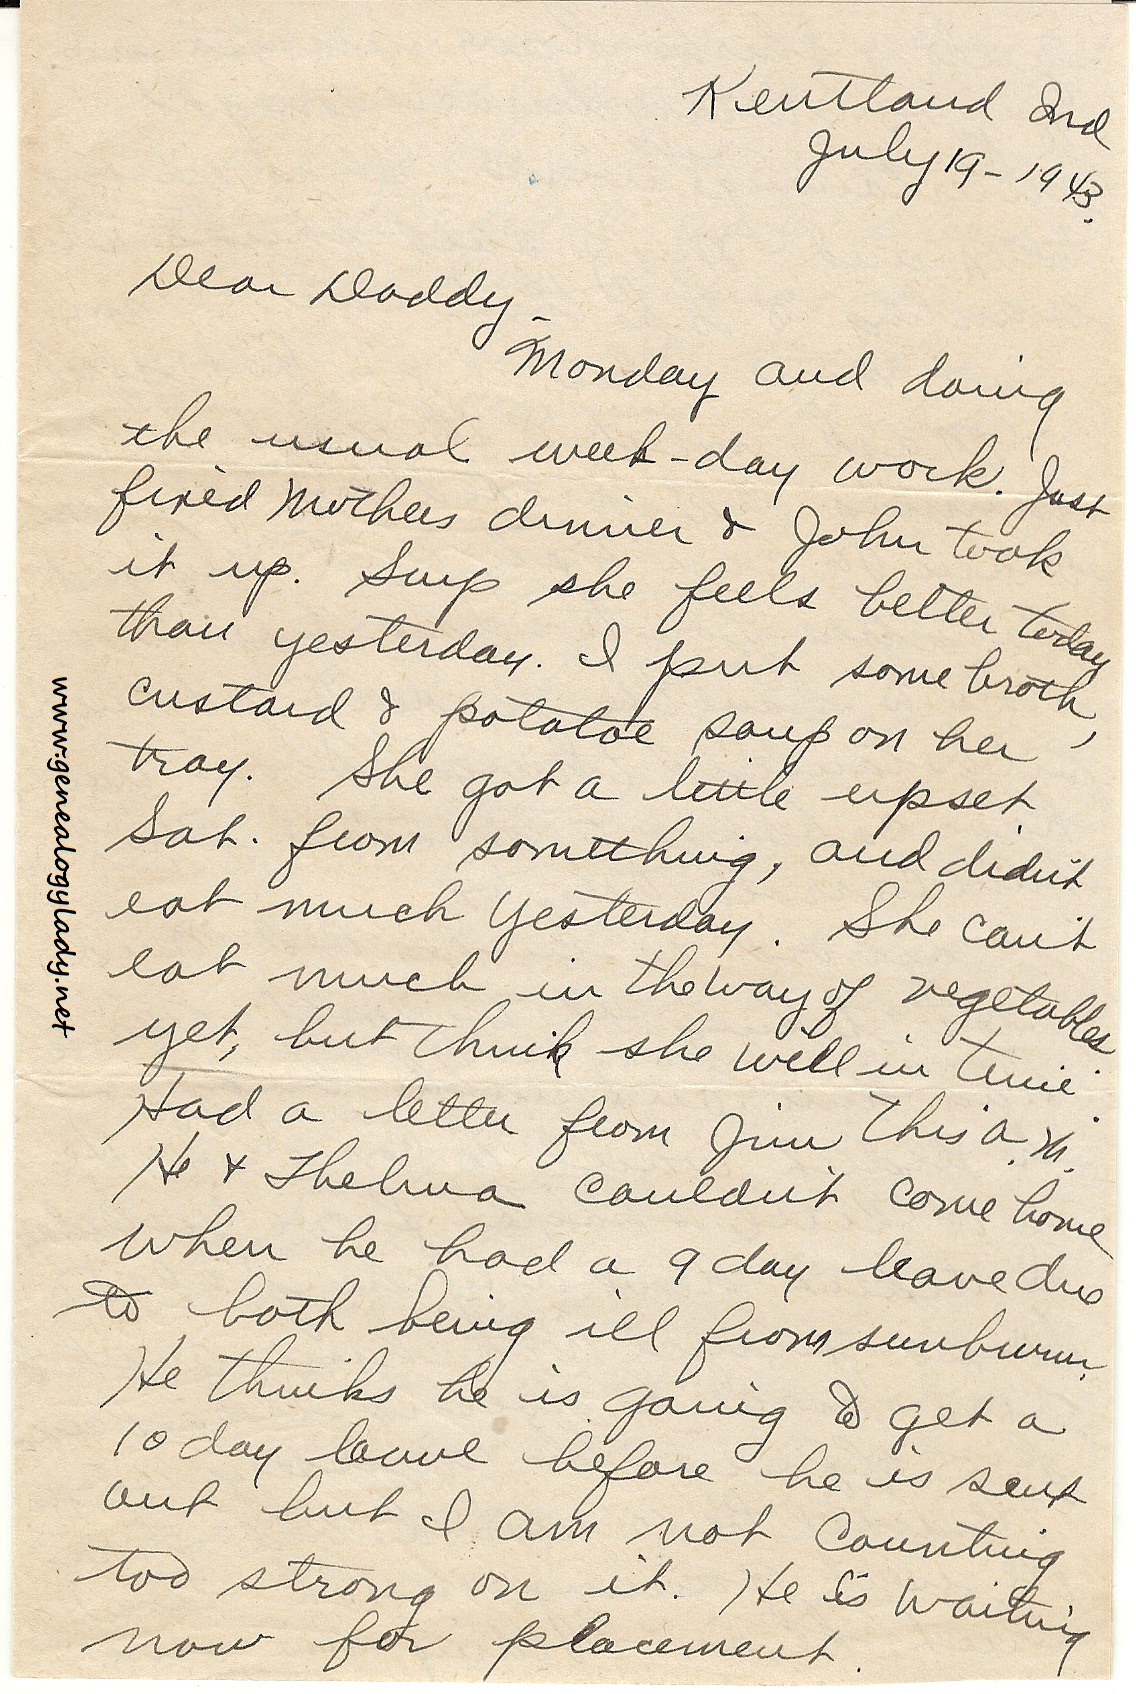 Kentland Ind
July 19-1943.
Dear Daddy -
Monday and doing
the usual week-day work. Just
fixed Mothers dinner & John took
it up. Says she feels better today
than yesterday. I put some broth,
custard & potatoe soup on her
tray. She got a little upset
Sat. from something, and didn't
eat much yesterday. She can't
eat much in the way of vegetables
yet, but think she will in time.
Had a letter from Jim this a.m.
He & Thelma couldn't come home
when he had a 9 day leave due
to both being ill from sunburn.
He thinks he is going to get a
10 day leave before he is sent
out but I am not counting
too strong on it. He is waiting
now for placement.
www.genealogylady.net